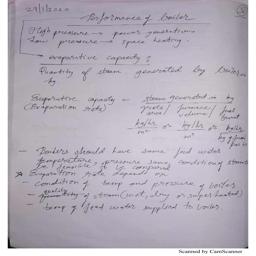 29/1/2020
Performance of boiler
High pressure → power generation
Low pressure → space heating.
→ evaporative capacity ?
Quantity of steam generated by boiler
Evaporative capacity - steam generated in kg
(Evaporation rate) grate / furnace / fuel
area / volume / burnt
kg/hr or kg/hr or kg/hr
m² m³ kg of fuel
- Boilers should have same feed water
temperature, pressure same condition of steam
to be compared
* Evaporation rate depends on
- condition of temp and pressure of boiler
quality
- of steam (wet, dry or super heated)
temp of feed water supplied to boiler.
Scanned by CamScanner